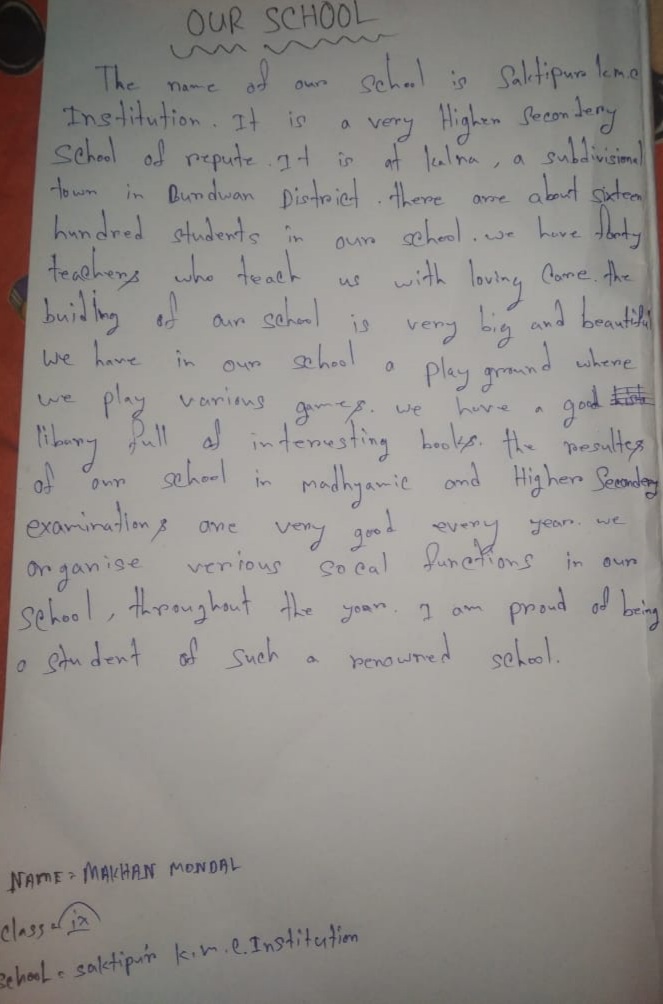 OUR SCHOOL
The name of our school is Saktipur k.m.c
Institution. It is a very Higher Secondery
School of repute. It is at kalna, a subdivisional
town in Burdwan District. there are about sixteen
hundred students in our school. we have forty
teachers who teach us with loving Care. the
buidling of our school is very big and beautiful
We have in our school a play ground where
we play various games. we have a good
libary full of interesting books. the resultes
of our school in madhyamic and Higher Secondery
examinations are very good every year. we
organise verious socal functions in our
School, throughout the year. I am proud of being
a student of such a renowned school.
NAME = MAKHAN MONDAL
Class = ix
School = saktipur k.m.c. Institution